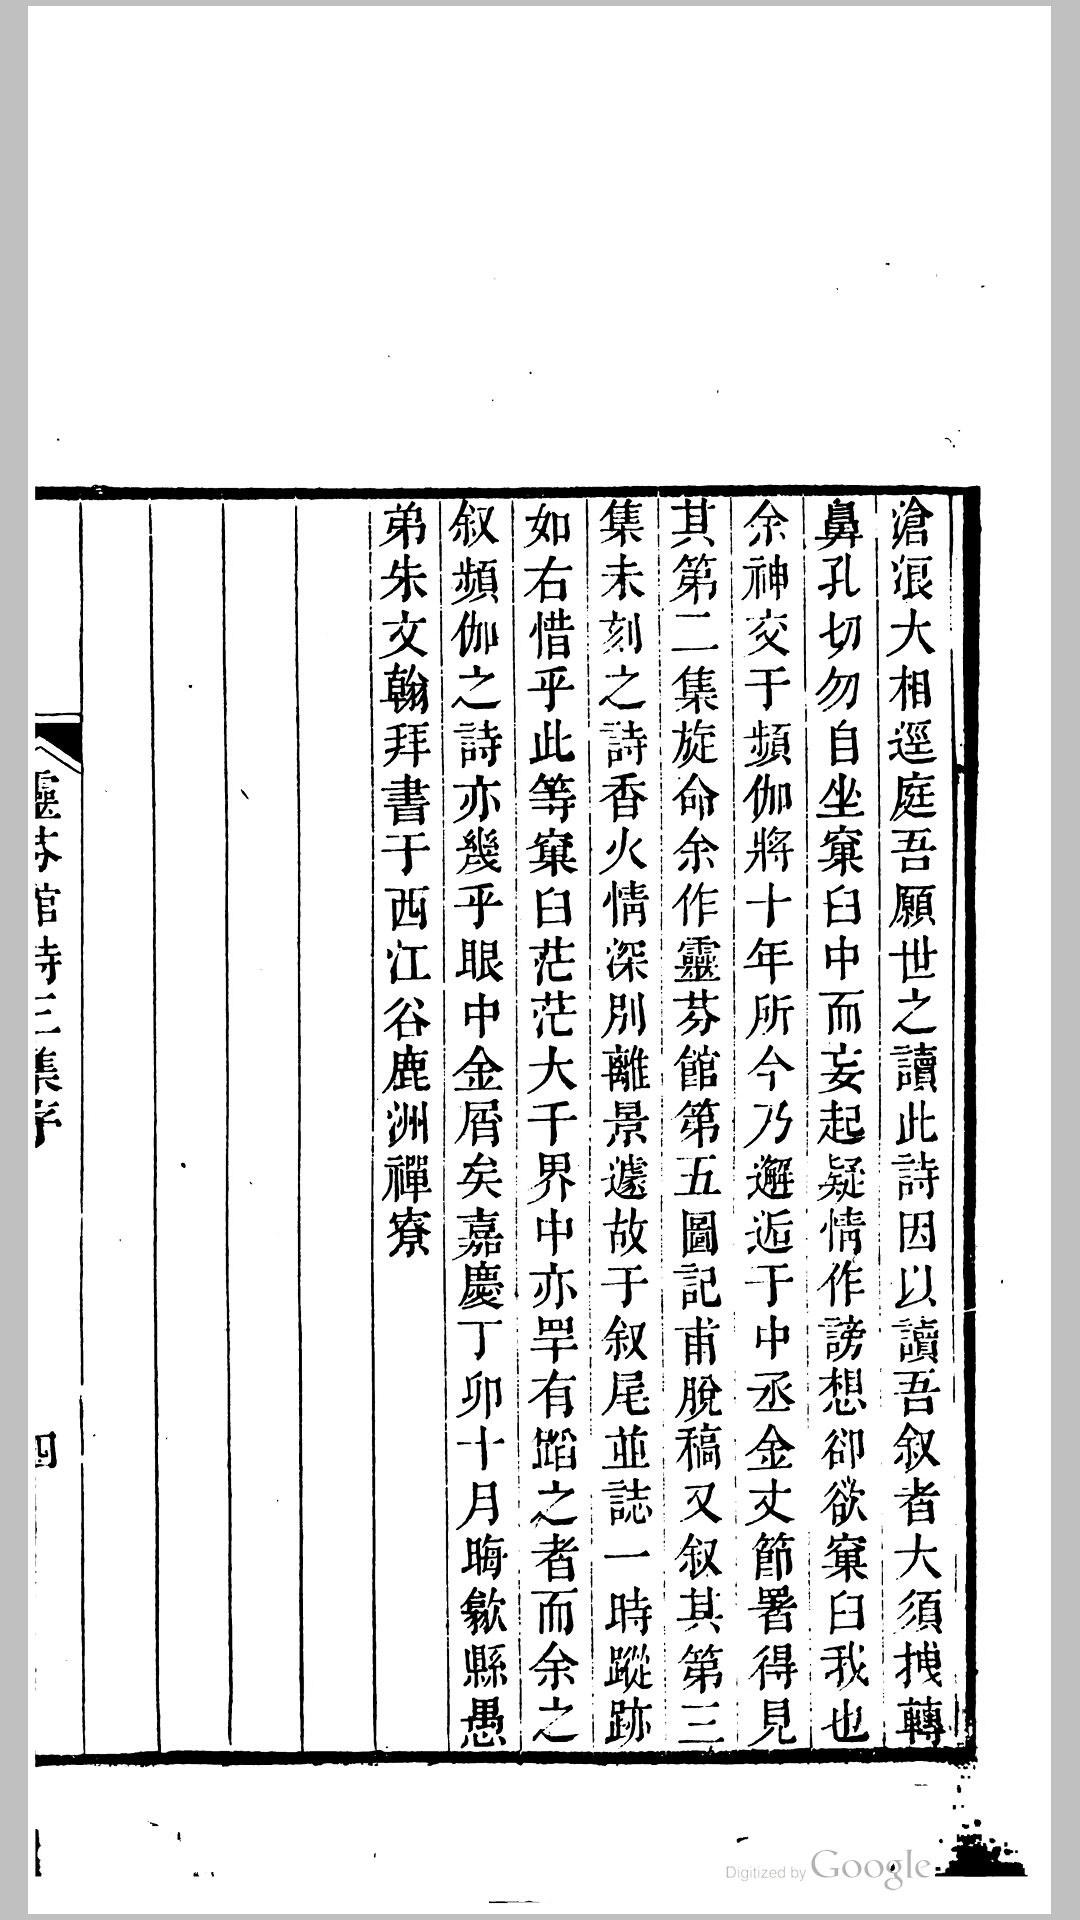 滄浪大相逕庭吾願世之讀此詩因以讀吾叙者大須拽轉
鼻孔切勿自坐窠臼中而妄起疑情作謗想卻欲窠臼我也
余神交于頻伽將十年所今乃邂逅于中丞金丈節署得見
其第二集旋命余作靈芬館第五圖記甫脫稿又叙其第三
集未刻之詩香火情深別離景遽故于叙尾並誌一時蹤跡
如右惜乎此等窠臼茫茫大千界中亦罕有蹈之者而余之
叙頻伽之詩亦幾乎眼中金屑矣嘉慶丁卯十月晦歙縣愚
弟朱文翰拜書于西江谷鹿洲禪寮
靈芬館詩三集序
四
Digitized by Google